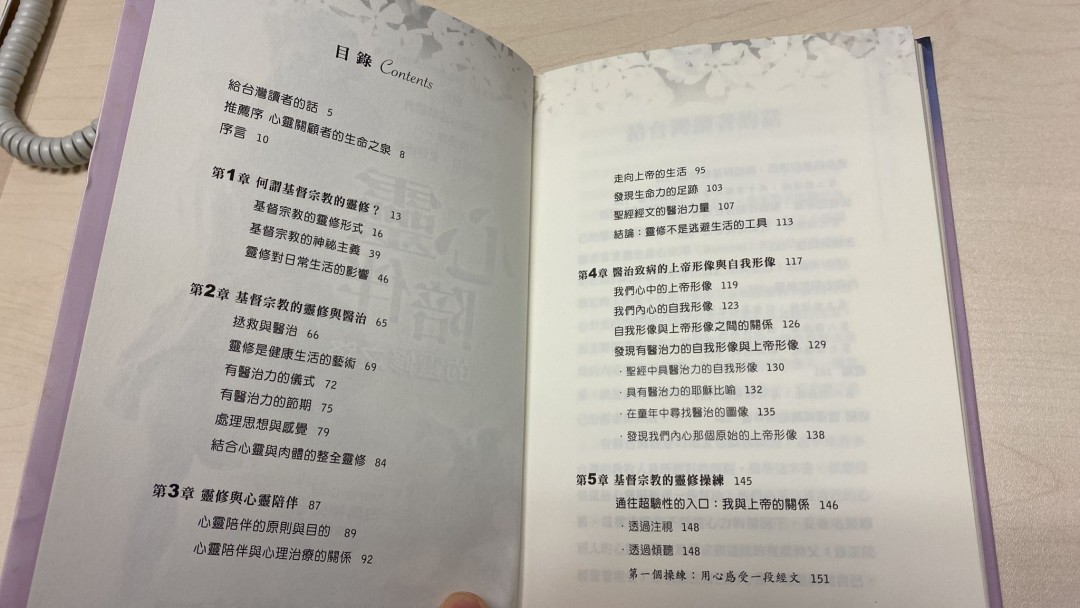 目錄 Contents
給台灣讀者的話 5
推薦序 心靈關顧者的生命之泉 8
序言 10
第1章 何謂基督宗教的靈修？ 13
基督宗教的靈修形式 16
基督宗教的神祕主義 39
靈修對日常生活的影響 46
第2章 基督宗教的靈修與醫治 65
拯救與醫治 66
靈修是健康生活的藝術 69
有醫治力的儀式 72
有醫治力的節期 75
處理思想與感覺 79
結合心靈與肉體的整全靈修 84
第3章 靈修與心靈陪伴 87
心靈陪伴的原則與目的 89
心靈陪伴與心理治療的關係 92
走向上帝的生活 95
發現生命力的足跡 103
聖經經文的醫治力量 107
結論：靈修不是逃避生活的工具 113
第4章 醫治致病的上帝形像與自我形像 117
我們心中的上帝形像 119
我們內心的自我形像 123
自我形像與上帝形像之間的關係 126
發現有醫治力的自我形像與上帝形像 129
·聖經中具醫治力的自我形像 130
·具有醫治力的耶穌比喻 132
·在童年中尋找醫治的圖像 135
·發現我們內心那個原始的上帝形像 138
第5章 基督宗教的靈修操練 145
通往超驗性的入口：我與上帝的關係 146
·透過注視 148
·透過傾聽 148
第一個操練：用心感受一段經文 151